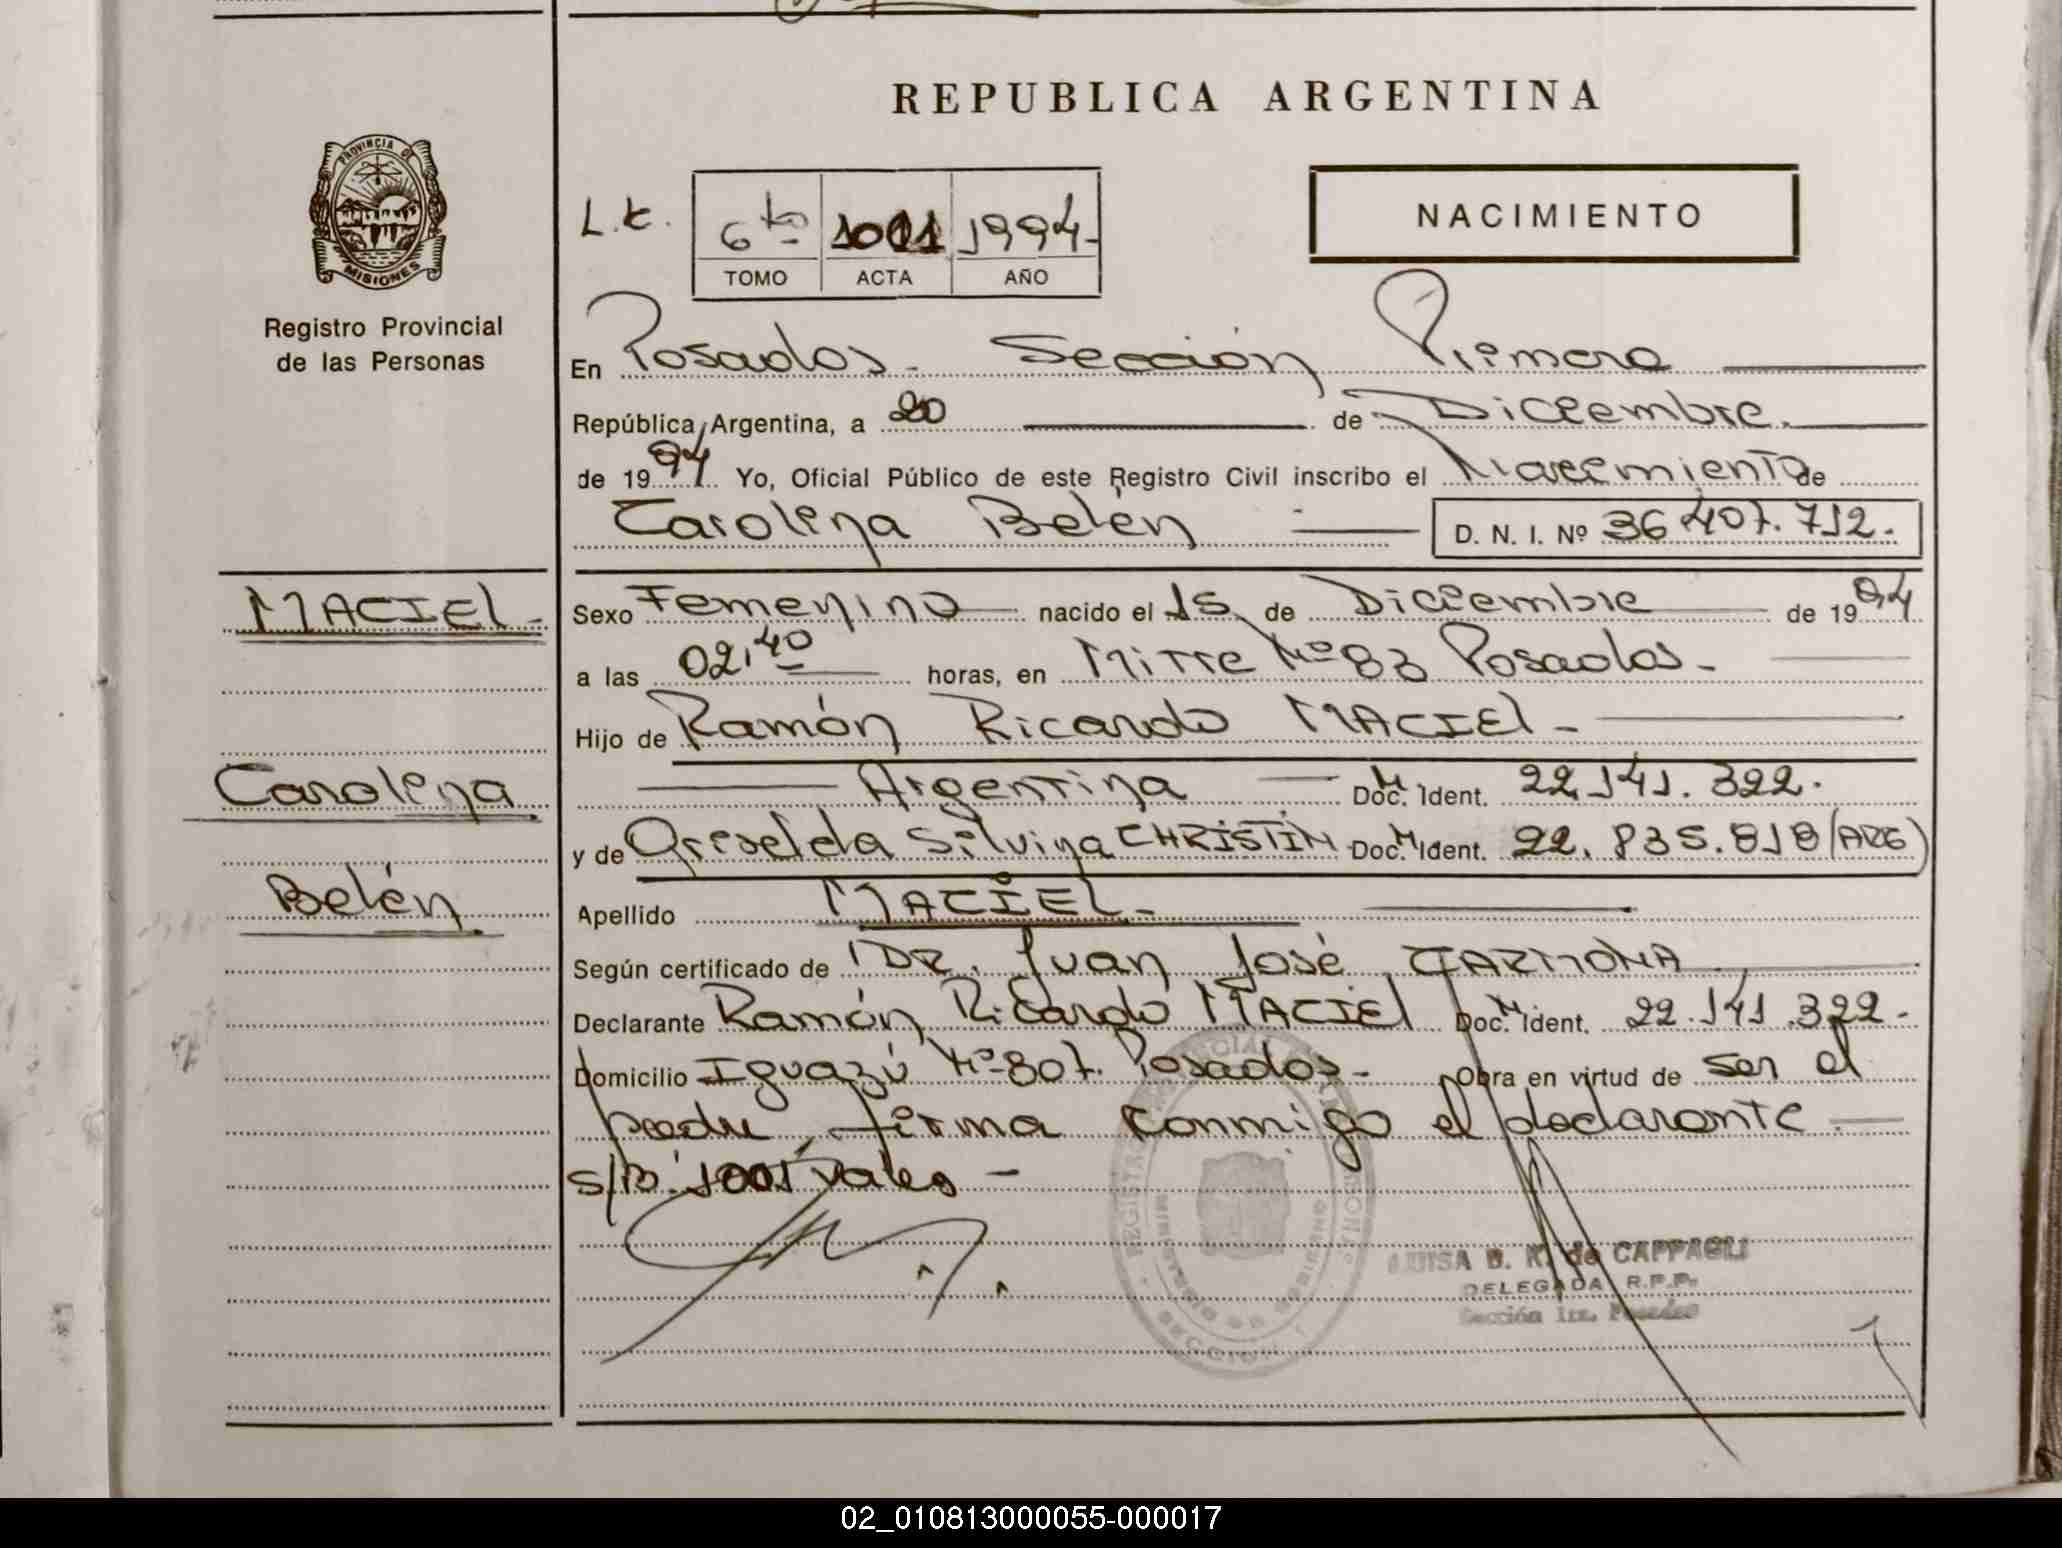 REPUBLICA ARGENTINA
PROVINCIA DE
MISIONES
Registro Provincial
de las Personas
L.K. 6to 1001 1994
TOMO ACTA AÑO
NACIMIENTO
En Posadas - Sección Primera
República Argentina, a 20 de Diciembre.
de 1994 Yo, Oficial Público de este Registro Civil inscribo el Nacimiento de
Carolina Belén D. N. I. Nº 36 407.712.
MACIEL -
Sexo Femenino nacido el 15 de Diciembre de 1994
a las 02,40 horas, en Mitre Nº 83 Posadas -
Hijo de Ramón Ricardo MACIEL -
Carolina
Argentina Doc. M Ident. 22.141.322.
y de Griselda Silvina CHRISTIN Doc. M Ident. 22.835.818 (ARG)
Belén
Apellido MACIEL -
Según certificado de DR. Juan José CARMONA
Declarante Ramón Ricardo MACIEL Doc. M Ident. 22.141.322 -
Domicilio Iguazú Nº 807. Posadas - Obra en virtud de ser el
padre, firma conmigo el declarante
s/b: 1001 vale -
LUISA B. K. de CAPPAGLI
DELEGADA R.P.P.
Sección 1ra. Posadas
SECCION 1
02_010813000055-000017